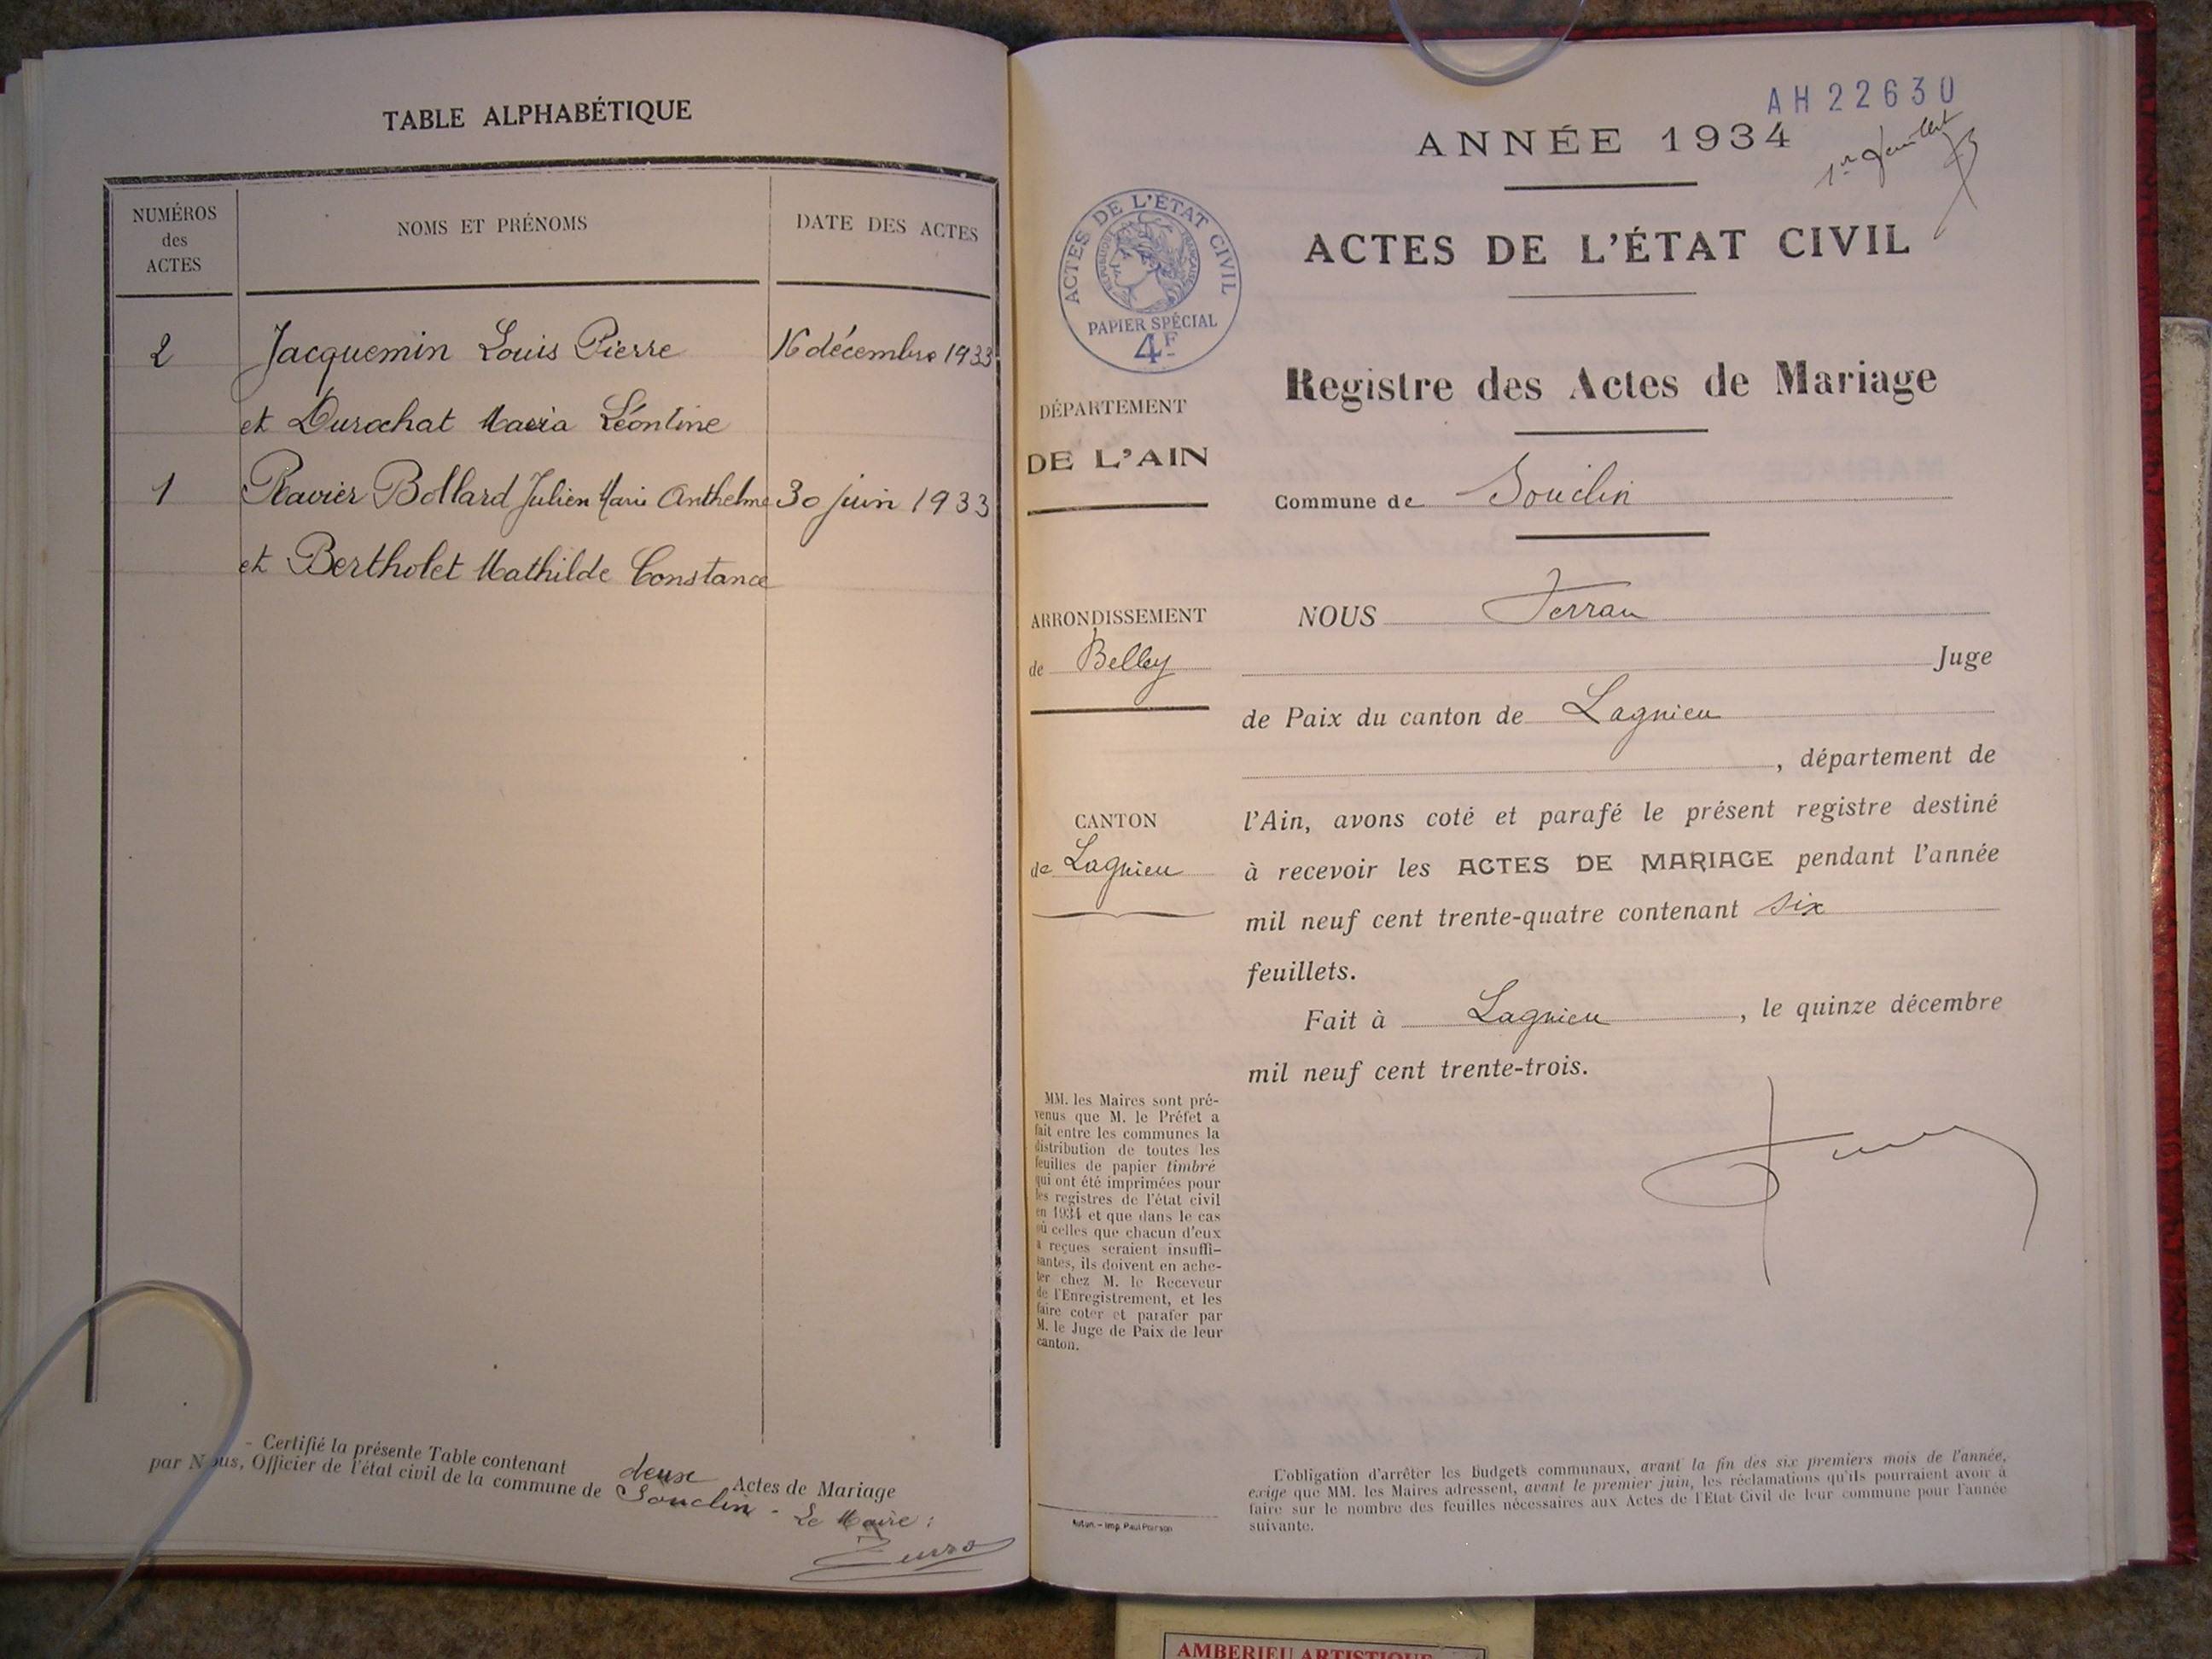 TABLE ALPHABÉTIQUE
NUMÉROS
des
ACTES
NOMS ET PRÉNOMS
DATE DES ACTES
2 Jacquemin Louis Pierre 16 décembre 1933
et Durochat Maria Léontine
1 Ravier Bollard Julien Marie Anthelme 30 juin 1933
et Bertholet Mathilde Constance
Certifié la présente Table contenant deux Actes de Mariage
par Nous, Officier de l'état civil de la commune de Souclin -
Le Maire :
AH22630
ANNÉE 1934
1er feuillet
ACTES DE L'ÉTAT CIVIL
ACTES DE L'ÉTAT CIVIL
RÉPUBLIQUE FRANÇAISE
PAPIER SPÉCIAL
4F
Registre des Actes de Mariage
DÉPARTEMENT
DE L'AIN
Commune de Souclin
ARRONDISSEMENT
de Belley
CANTON
de Lagnieu
NOUS Ferran
Juge
de Paix du canton de Lagnieu
, département de
l'Ain, avons coté et parafé le présent registre destiné
à recevoir les ACTES DE MARIAGE pendant l'année
mil neuf cent trente-quatre contenant six
feuillets.
Fait à Lagnieu, le quinze décembre
mil neuf cent trente-trois.
MM. les Maires sont pré-
venus que M. le Préfet a
fait entre les communes la
distribution de toutes les
feuilles de papier timbré
qui ont été imprimées pour
les registres de l'état civil
en 1934 et que dans le cas
où celles que chacun d'eux
a reçues seraient insuffi-
santes, ils doivent en ache-
ter chez M. le Receveur
de l'Enregistrement, et les
faire coter et parafer par
M. le Juge de Paix de leur
canton.
Autun. - Imp. Paul
L'obligation d'arrêter les budgets communaux, avant la fin des six premiers mois de l'année,
exige que MM. les Maires adressent, avant le premier juin, les réclamations qu'ils pourraient avoir à
faire sur le nombre des feuilles nécessaires aux Actes de l'Etat Civil de leur commune pour l'année
suivante.
AMBERIEU ARTISTIQUE